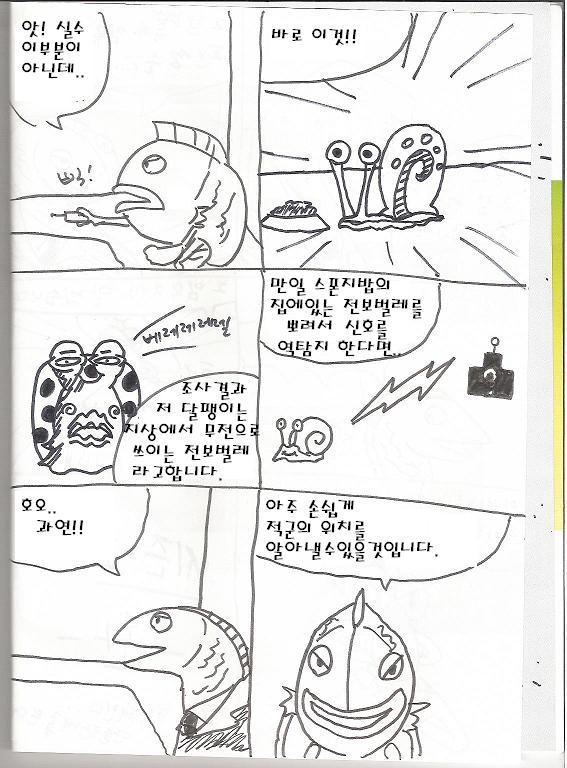 앗! 실수
이부분이
아닌데..
삑!
바로 이것!!
베레레레렐
조사결과
저 달팽이는
지상에서 무전으로
쓰이는 전보벌레
라고합니다.
만일 스폰지밥의
집에있는 전보벌레를
뽀려서 신호를
역탐지 한다면..
호오..
과연!!
아주 손쉽게
적군의 위치를
알아낼수있을것입니다.